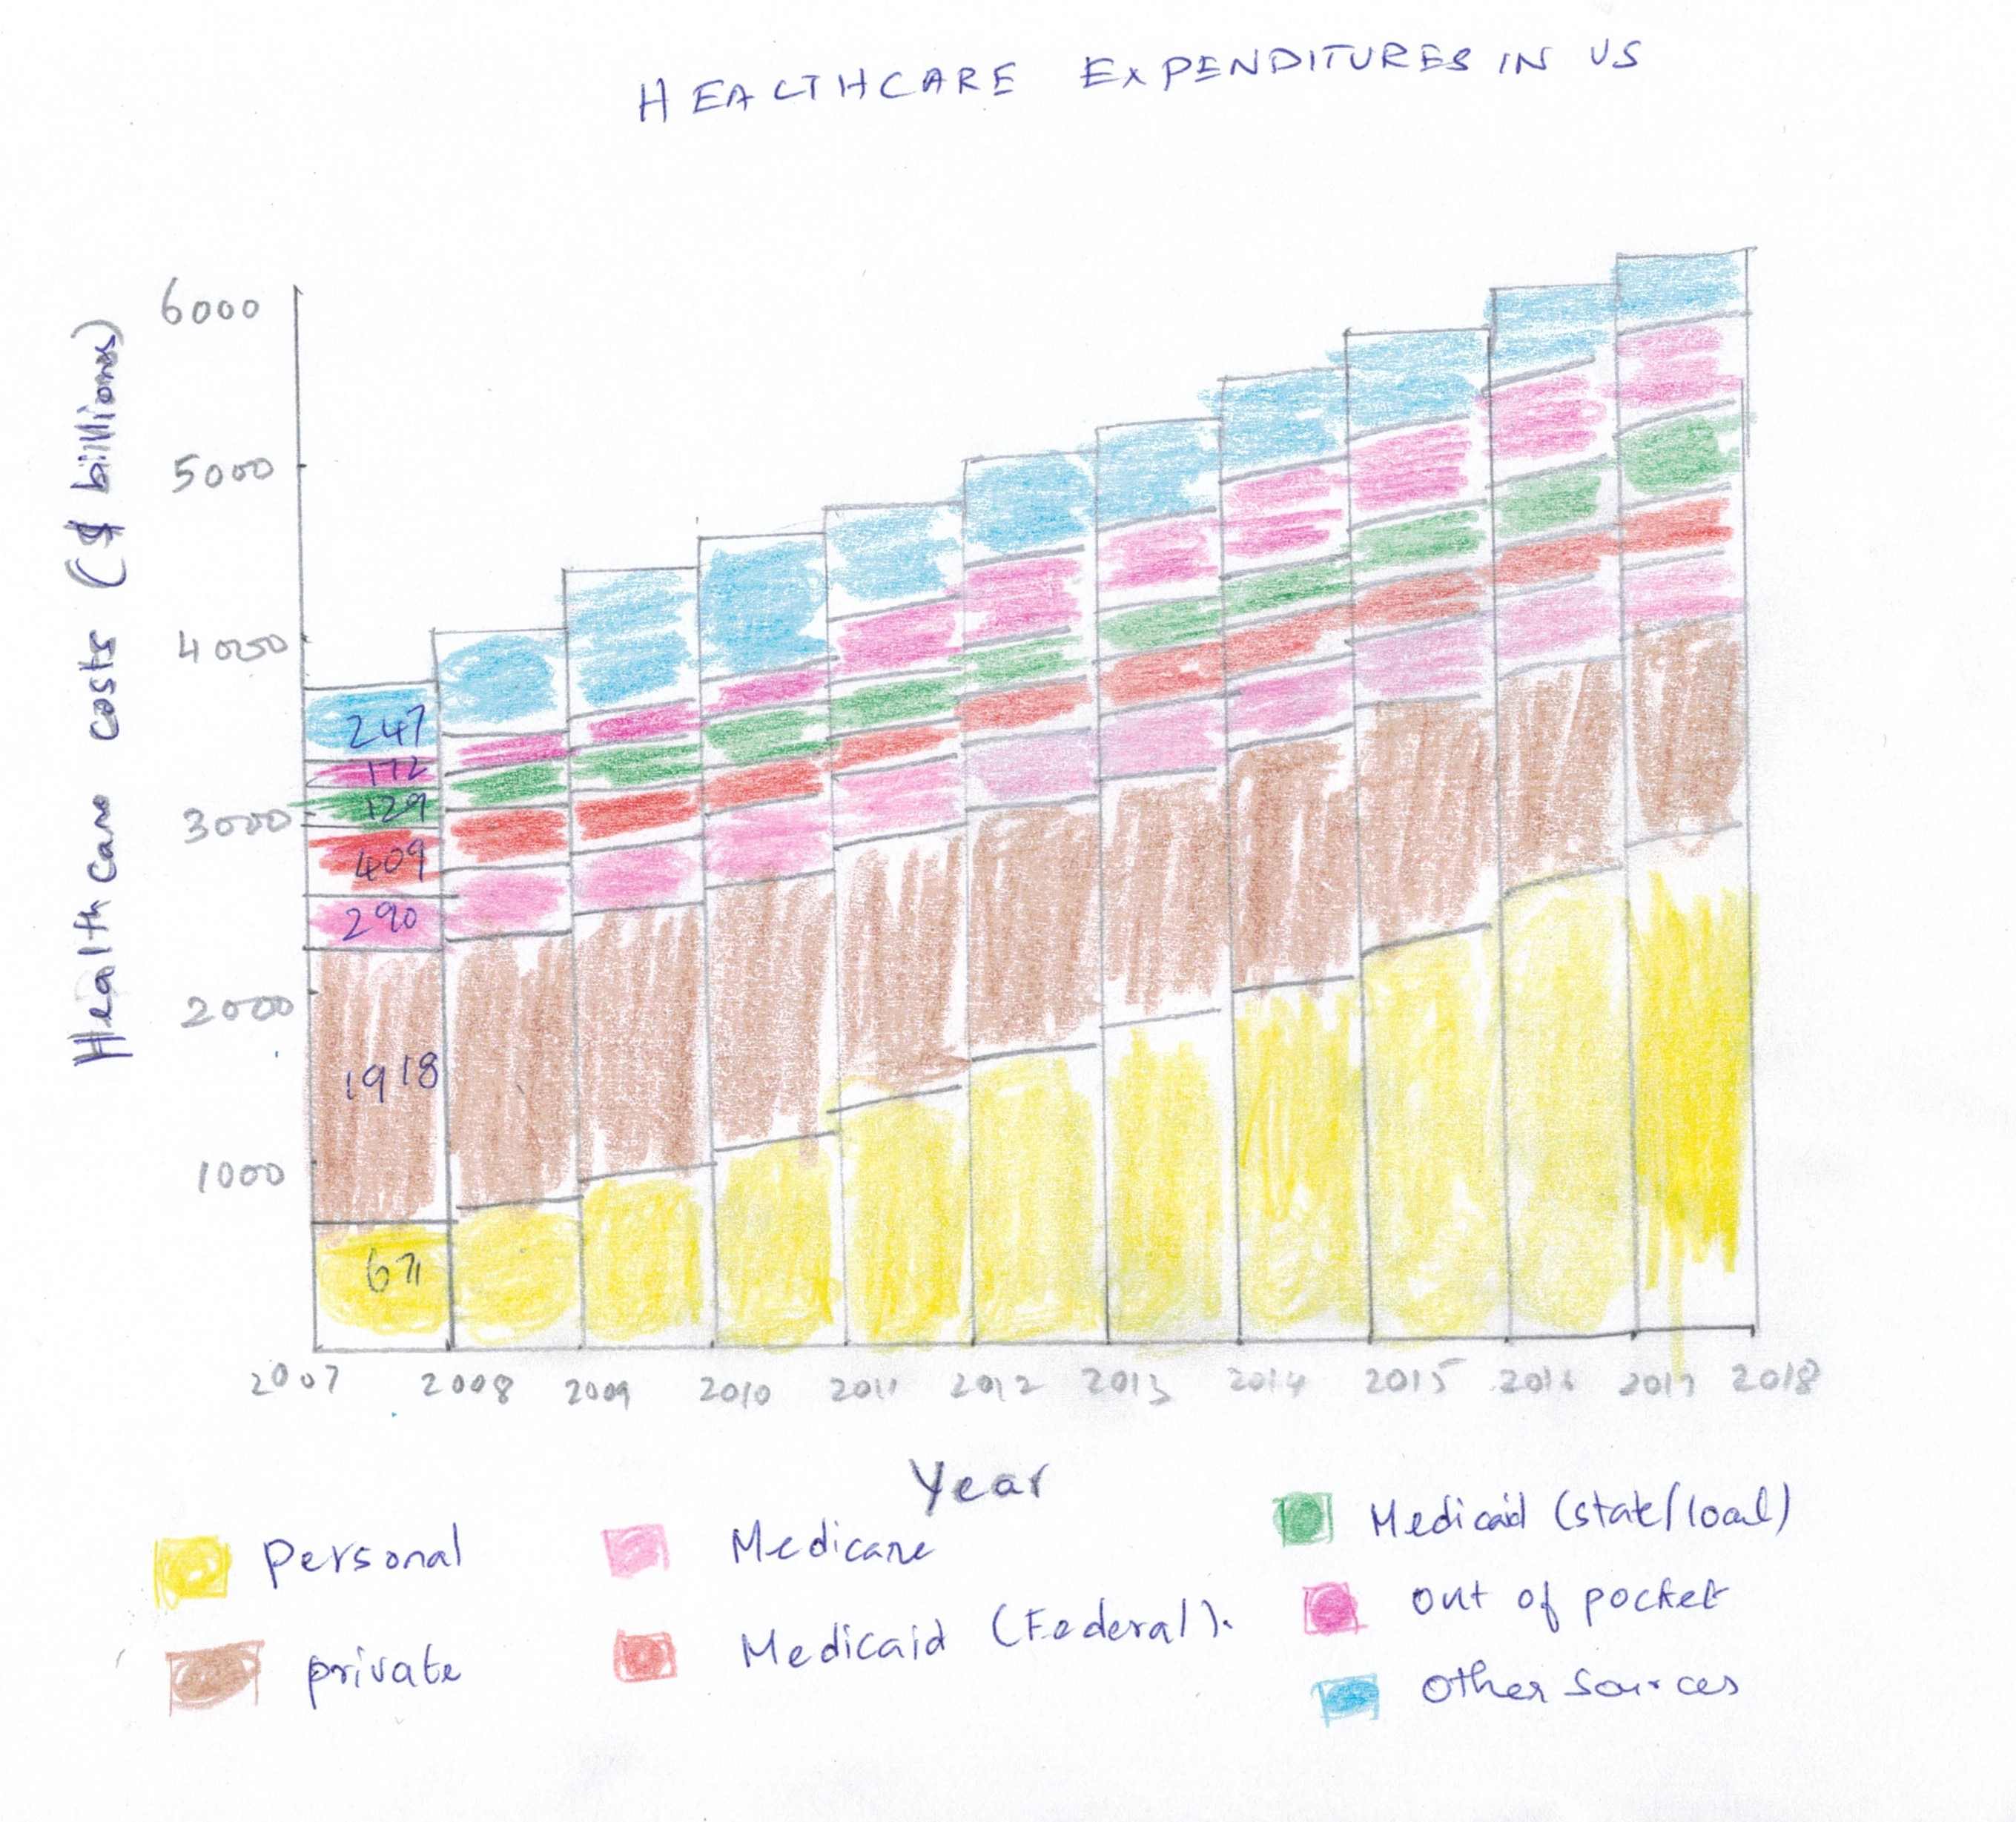 HEALTHCARE EXPENDITURES IN US
Healthcare costs ($ billions)
6000
5000
4000
3000
2000
1000
247
172
129
409
290
1918
671
2007 2008 2009 2010 2011 2012 2013 2014 2015 2016 2017 2018
Year
Personal
private
Medicare
Medicaid (Federal).
Medicaid (state/local)
out of pocket
other sources